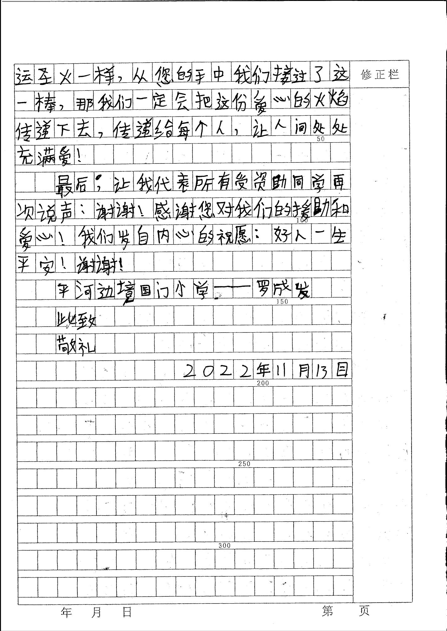 运圣火一样，从您的手中我们接过了这
修正栏
一棒，那我们一定会把这份爱心的火焰
传递下去，传递给每个人，让人间处处
50
充满爱！
最后，让我代表所有受资助同学再
次说声：谢谢！感谢您对我们的援助和
100
爱心！我们发自内心的祝愿：好人一生
平安！谢谢！
平河边境国门小学——罗成发
150
此致
敬礼
2022年11月13日
200
250
300
年 月 日 第 页